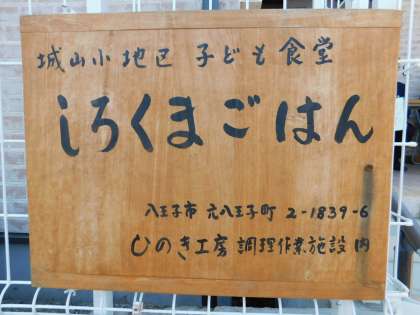 城山小地区 子ども食堂
しろくまごはん
八王子市 元八王子町 2-1839-6
ひのき工房 調理作業施設内